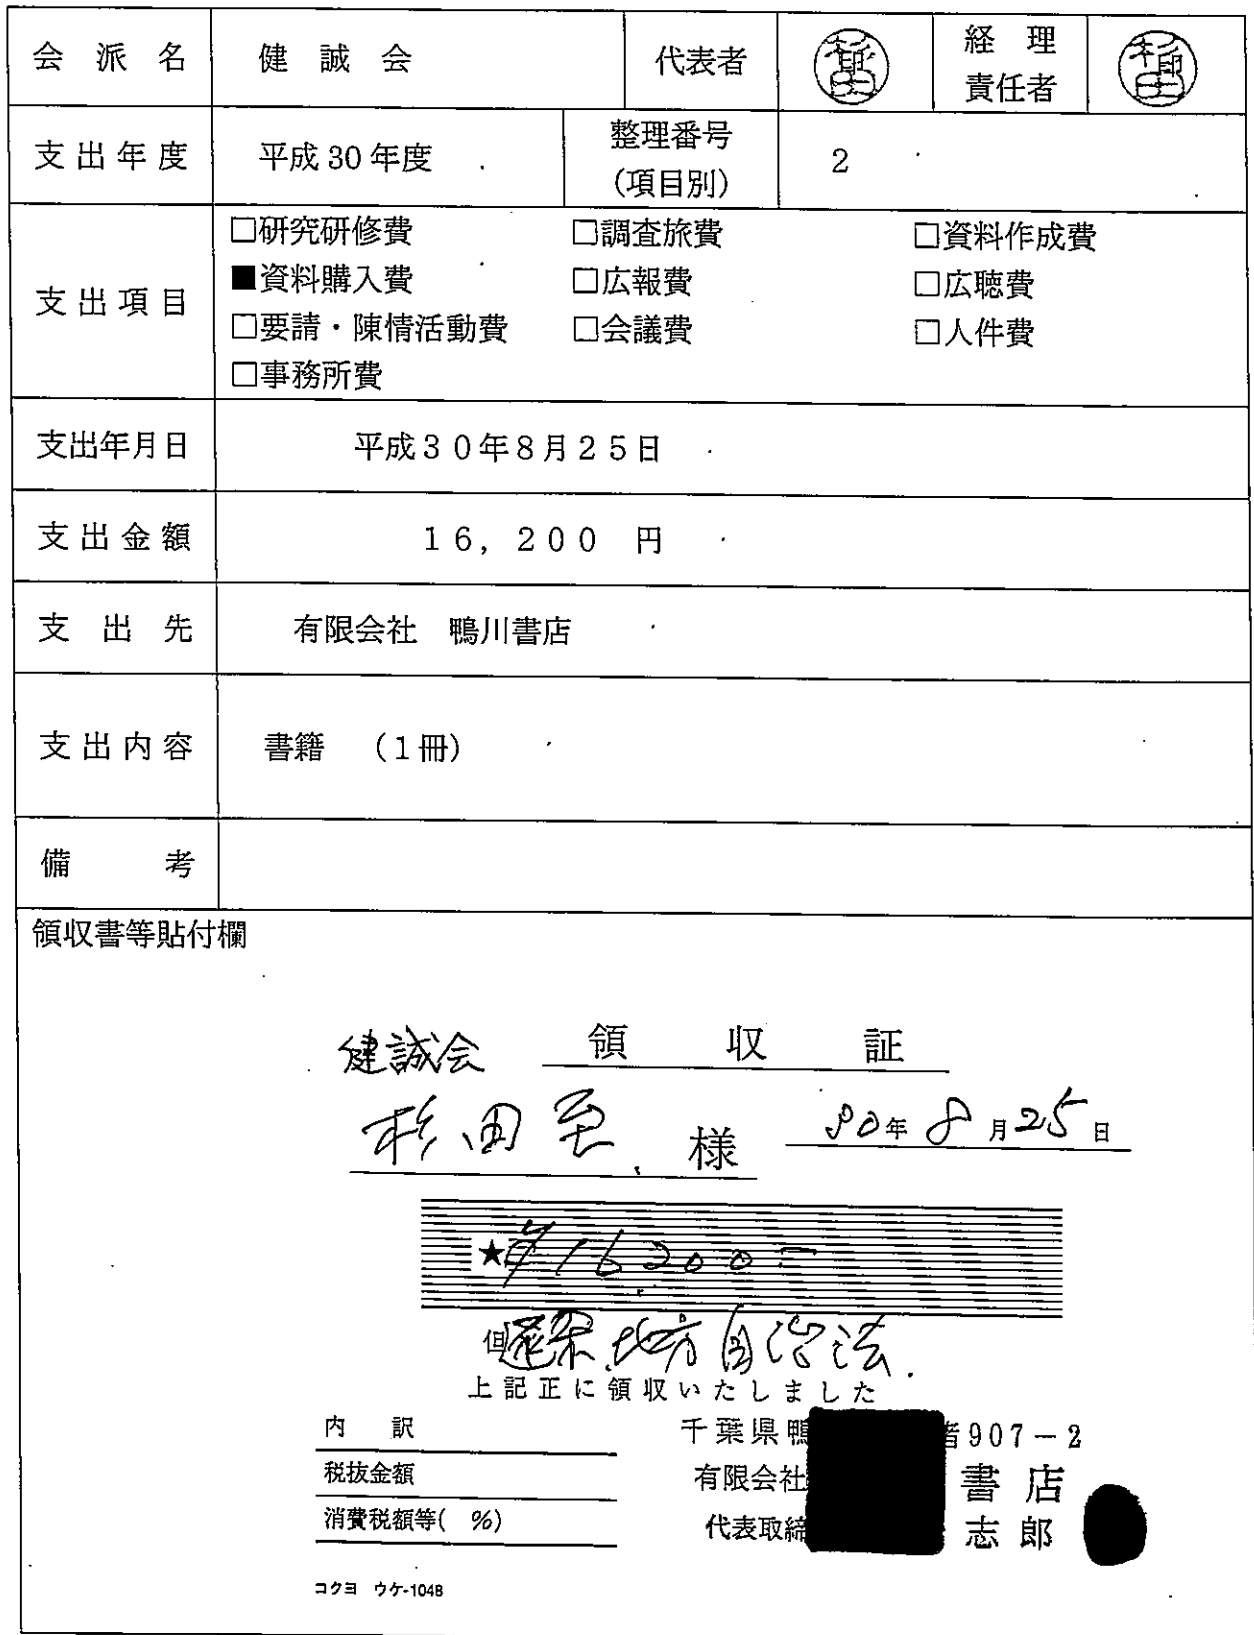 会派名 健誠会 代表者 経理責任者
支出年度 平成30年度 整理番号(項目別) 2
支出項目
□研究研修費 □調査旅費 □資料作成費
■資料購入費 □広報費 □広聴費
□要請・陳情活動費 □会議費 □人件費
□事務所費
支出年月日 平成30年8月25日
支出金額 16,200 円
支出先 有限会社 鴨川書店
支出内容 書籍 (1冊)
備考
領収書等貼付欄
健誠会 領収証
杉田至 様 30年8月25日
★¥16,200-
但 逐条地方自治法.
上記正に領収いたしました
内訳 千葉県鴨 907-2
税抜金額 有限会社 書店
消費税額等( %) 代表取締 志郎
コクヨ ウケ-1048